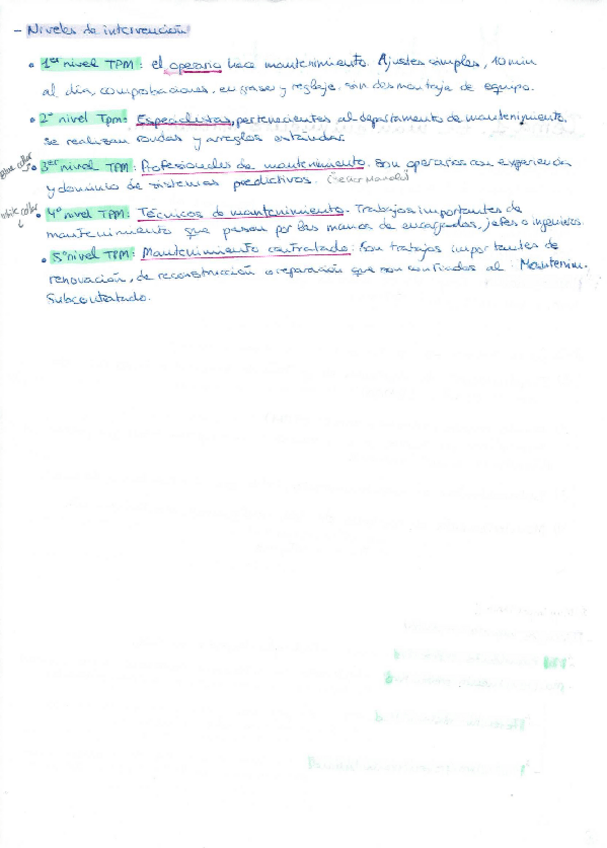 - Niveles de intervención
• 1er nivel TPM: el operario hace mantenimiento. Ajustes simples, 10 min
al día, comprobaciones, engrase y reglaje, sin desmontaje de equipo.
• 2º nivel Tpm: Especialistas, pertenecientes al departamento de mantenimiento.
se realizan rondas y arreglos estándar.
blue collar
• 3er nivel TPM: Profesionales de mantenimiento. son operarios con experiencia
y dominio de sistemas predictivos. (Señor Manolo)
white collar
• 4º nivel TPM: Técnicos de mantenimiento. Trabajos importantes de
mantenimiento que pasan por las manos de encargados, jefes o ingenieros.
• 5º nivel TPM: Mantenimiento contratado: Son trabajos importantes de
renovación, de reconstrucción o reparación que son confiados al: Mantenim.
Subcontratado.